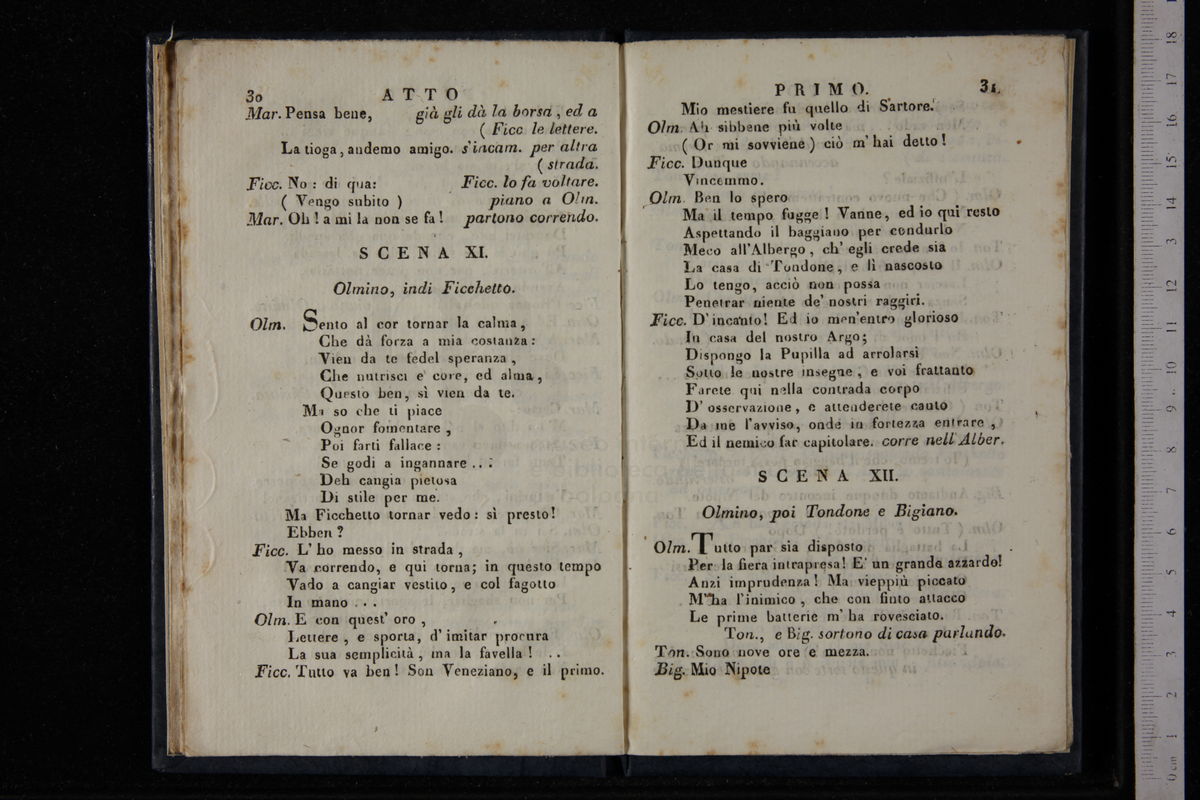 30 ATTO
Mar. Pensa bene, già gli dà la borsa, ed a
( Ficc le lettere.
La tioga, andemo amigo. s'incam. per altra
( strada.
Ficc. No : di qua: Ficc. lo fa voltare.
( Vengo subito ) piano a Olm.
Mar. Oh ! a mi la non se fa ! partono correndo.
SCENA XI.
Olmino, indi Ficchetto.
Olm. Sento al cor tornar la calma,
Che dà forza a mia costanza :
Vien da te fedel speranza,
Che nutrisci e core, ed alma,
Questo ben, sì vien da te.
Ma so che ti piace
Ognor fomentare,
Poi farti fallace :
Se godi a ingannare . . .
Deh cangia pietosa
Di stile per me.
Ma Ficchetto tornar vedo : sì presto!
Ebben ?
Ficc. L' ho messo in strada,
Va correndo, e qui torna; in questo tempo
Vado a cangiar vestito, e col fagotto
In mano . . .
Olm. E con quest' oro,
Lettere, e sporta, d' imitar procura
La sua semplicità, ma la favella ! . .
Ficc. Tutto va ben ! Son Veneziano, e il primo.
PRIMO. 31
Mio mestiere fu quello di Sartore.
Olm. Ah sibbene più volte
( Or mi sovviene ) ciò m' hai detto !
Ficc. Dunque
Vincemmo.
Olm. Ben lo spero
Ma il tempo fugge ! Vanne, ed io qui resto
Aspettando il baggiano per condurlo
Meco all'Albergo, ch' egli crede sia
La casa di Tondone, e lì nascosto
Lo tengo, acciò non possa
Penetrar niente de' nostri raggiri.
Ficc. D' incanto! Ed io men'entro glorioso
In casa del nostro Argo;
Dispongo la Pupilla ad arrolarsi
Sotto le nostre insegne, e voi frattanto
Farete qui nella contrada corpo
D' osservazione, e attenderete cauto
Da me l'avviso, onde in fortezza entrare,
Ed il nemico far capitolare. corre nell'Alber.
SCENA XII.
Olmino, poi Tondone e Bigiano.
Olm. Tutto par sia disposto
Per la fiera intrapresa! E' un grande azzardo!
Anzi imprudenza ! Ma vieppiù piccato
M' ha l'inimico, che con finto attacco
Le prime batterie m' ha rovesciato.
Ton., e Big. sortono di casa parlando.
Ton. Sono nove ore e mezza.
Big. Mio Nipote